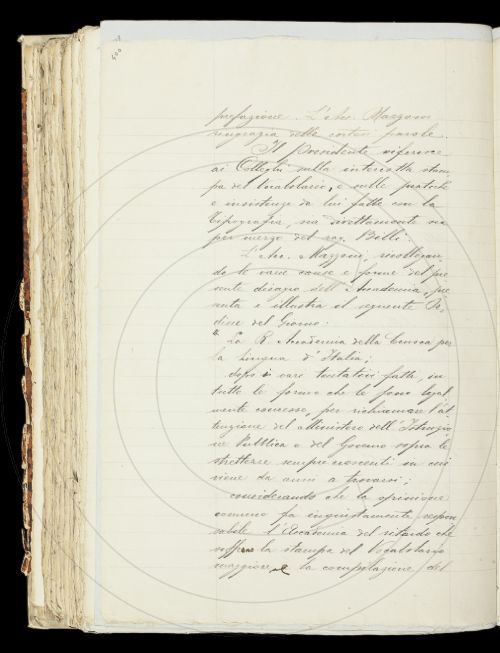 prefazione. L'Acc. Mazzoni
ringrazia delle cortesi parole.
Il Presidente riferisce
ai Colleghi sulla interrotta stam,
pa del Vocabolario, e sulle pratiche
e insistenze da lui fatte con la
Tipografia, sia direttamente sia
per mezzo del rag. Billi.
L'Acc. Mazzoni, ricollegan,
do le varie cause e forme del pre
sente disagio dell'Accademia, pre
senta e illustra il seguente Or,
dine del Giorno:
"La R. Accademia della Crusca per
la lingua d'Italia;
dopo i vari tentativi fatti, in
tutte le forme che le sono legal
mente concesse, per richiamare l'at
tenzione del Ministero dell'Istruzio
ne Pubblica e del Governo sopra le
strettezze sempre crescenti in cui
viene da anni a trovarsi;
considerando che la opinione
comune fa ingiustamente respon
sabile l'Accademia del ritardo che
soffre la stampa del Vocabolario
maggiore e la compilazione del